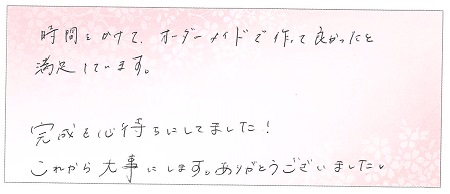 時間をかけて、オーダーメイドで作って良かったと
満足しています。
完成を心待ちにしてました!
これから大事にします。ありがとうございました。